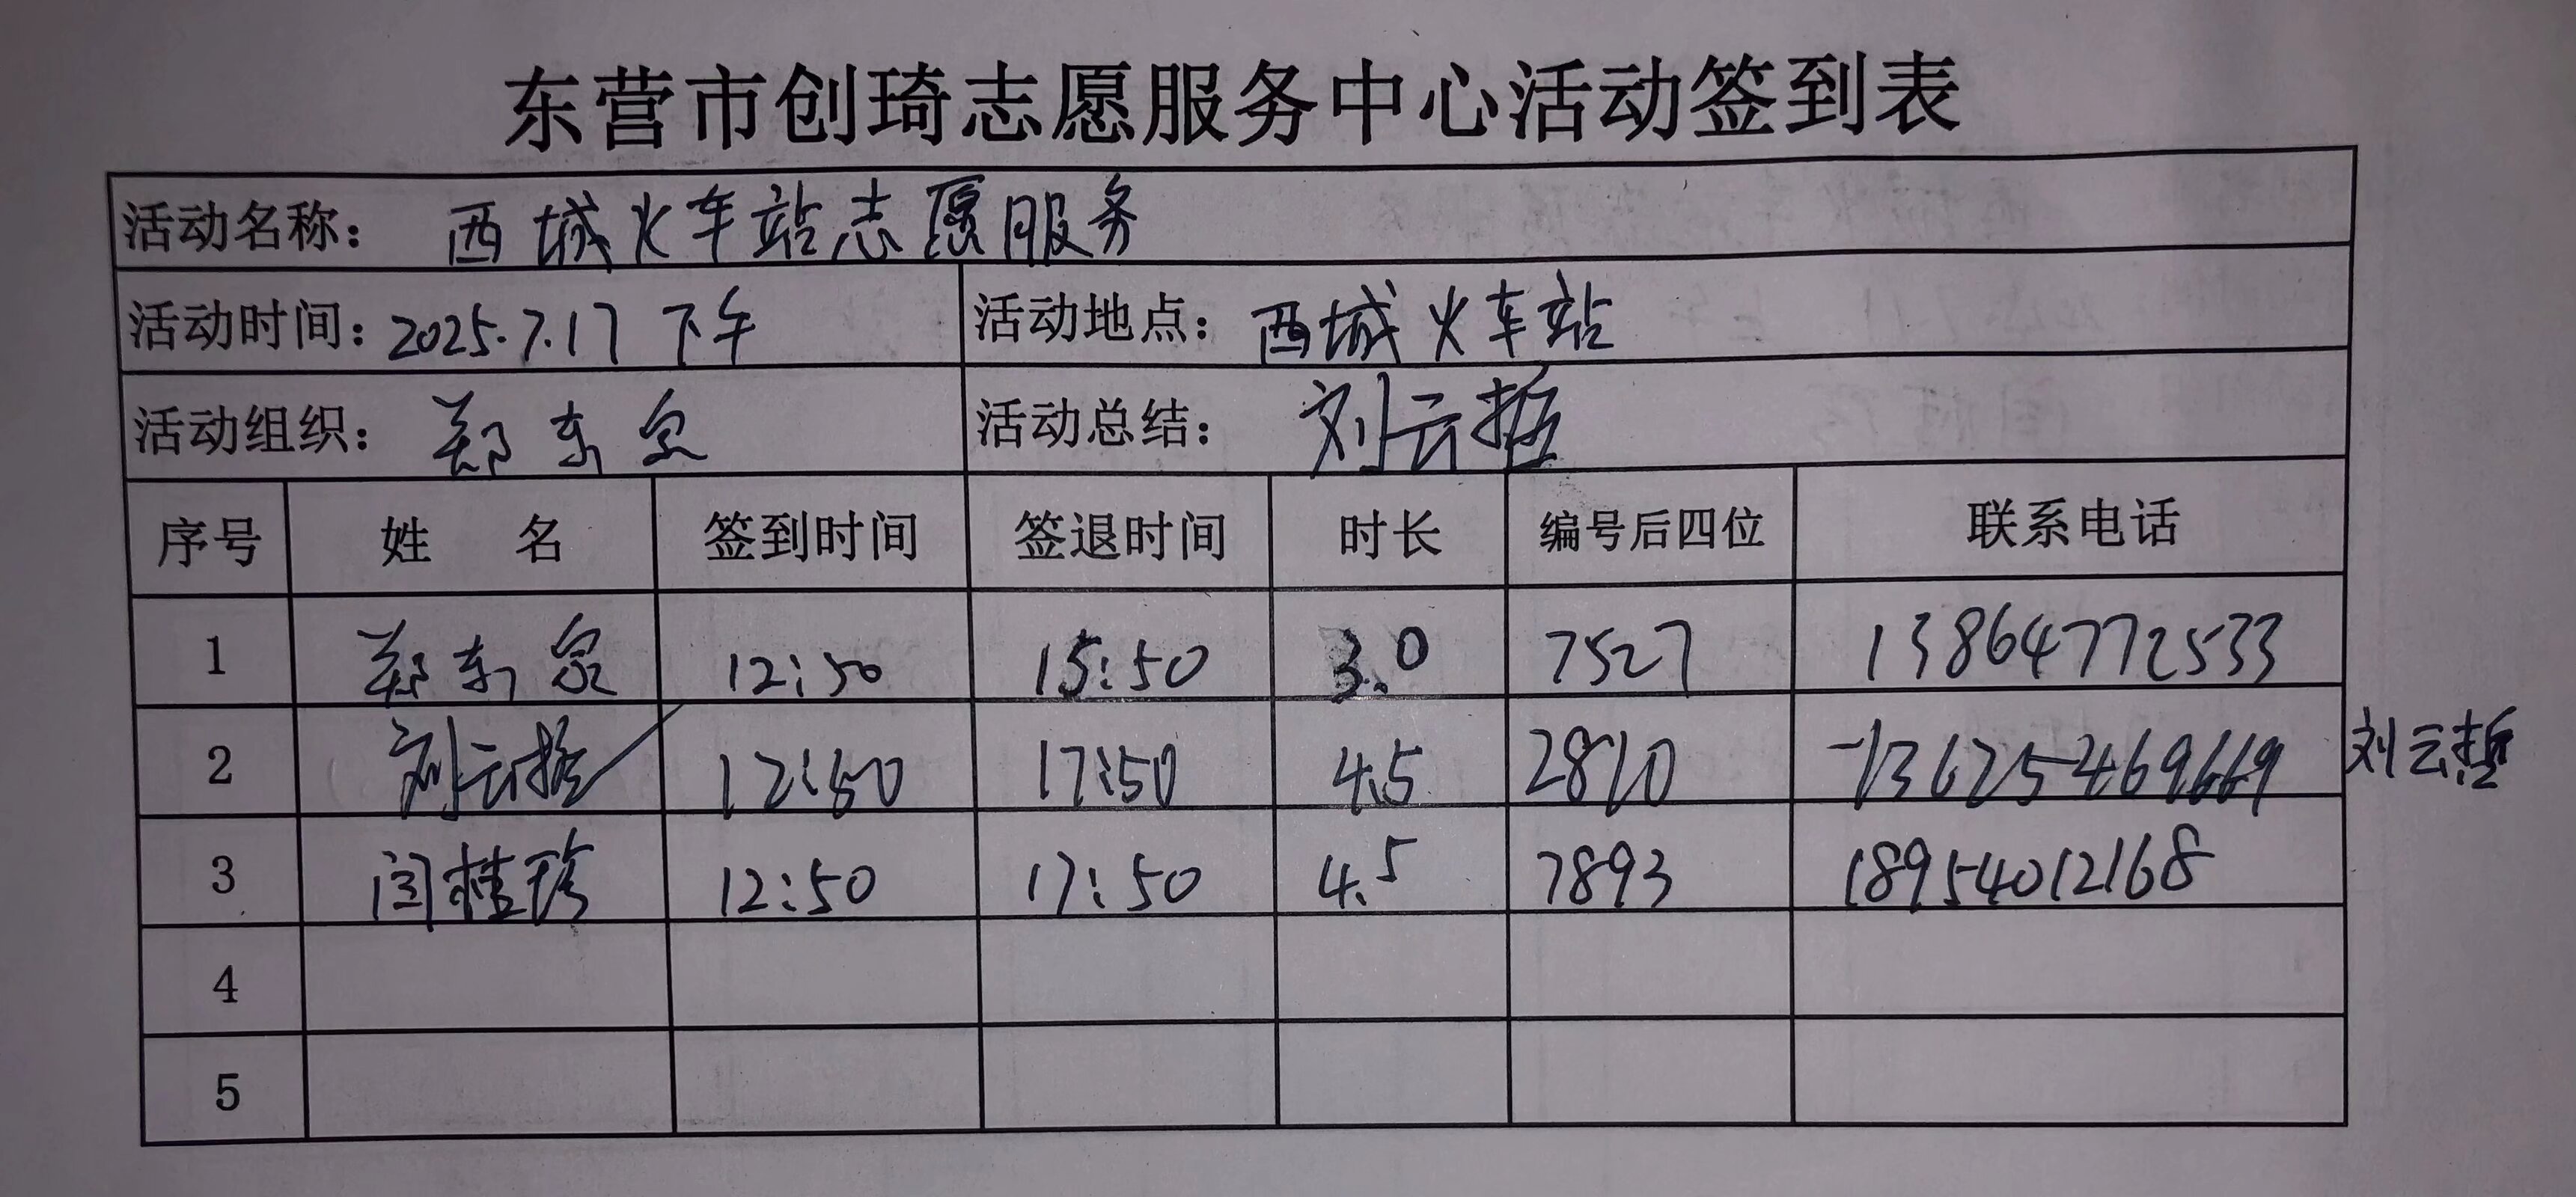 东营市创琦志愿服务中心活动签到表
活动名称: 西城火车站志愿服务
活动时间: 2025.7.17 下午 活动地点: 西城火车站
活动组织: 郑东泉 活动总结: 刘云哲
序号 姓 名 签到时间 签退时间 时长 编号后四位 联系电话
1 郑东泉 12:50 15:50 3.0 7527 13864772533
2 刘云哲 12:50 17:50 4.5 2810 13625469669 刘云哲
3 闫桂珍 12:50 17:50 4.5 7893 18954012168
4
5